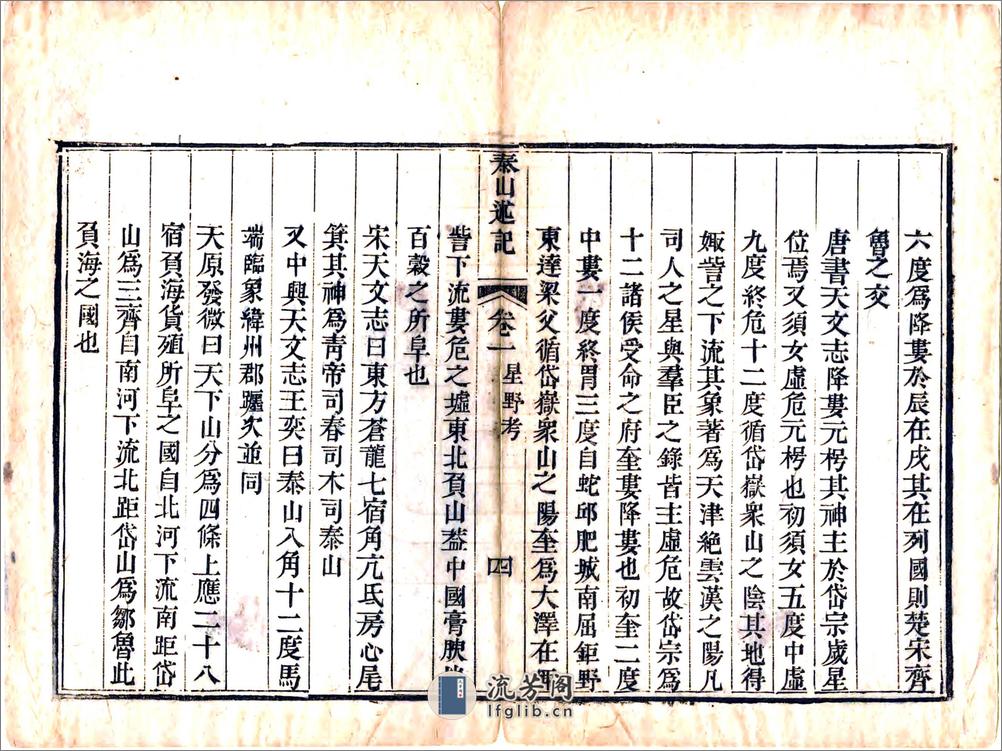 六度爲降婁於辰在戌其在列國則楚宋齊
魯之交
唐書天文志降婁元枵其神主於岱宗歲星
位焉又須女虛危元枵也初須女五度中虛
九度終危十二度循岱嶽衆山之陰其地得
娵訾之下流其象著爲天津絶雲漢之陽凡
司人之星與羣臣之錄皆主虛危故岱宗爲
十二諸侯受命之府奎婁降婁也初奎二度
中婁一度終胃三度自蛇邱肥城南屈鉅野
東達梁父循岱嶽衆山之陽奎爲大澤在
泰山述記 卷一 星野考 四
訾下流婁危之墟東北負山葢中國膏腴
百穀之所阜也
宋天文志曰東方蒼龍七宿角亢氐房心尾
箕其神爲靑帝司春司木司泰山
又中興天文志王奕曰泰山八角十二度馬
端臨象緯州郡躔次並同
天原發微曰天下山分爲四條上應二十八
宿負海貨殖所阜之國自北河下流南距岱
山爲三齊自南河下流北距岱山爲鄒魯此
負海之國也
流芳閣
lfglib.cn